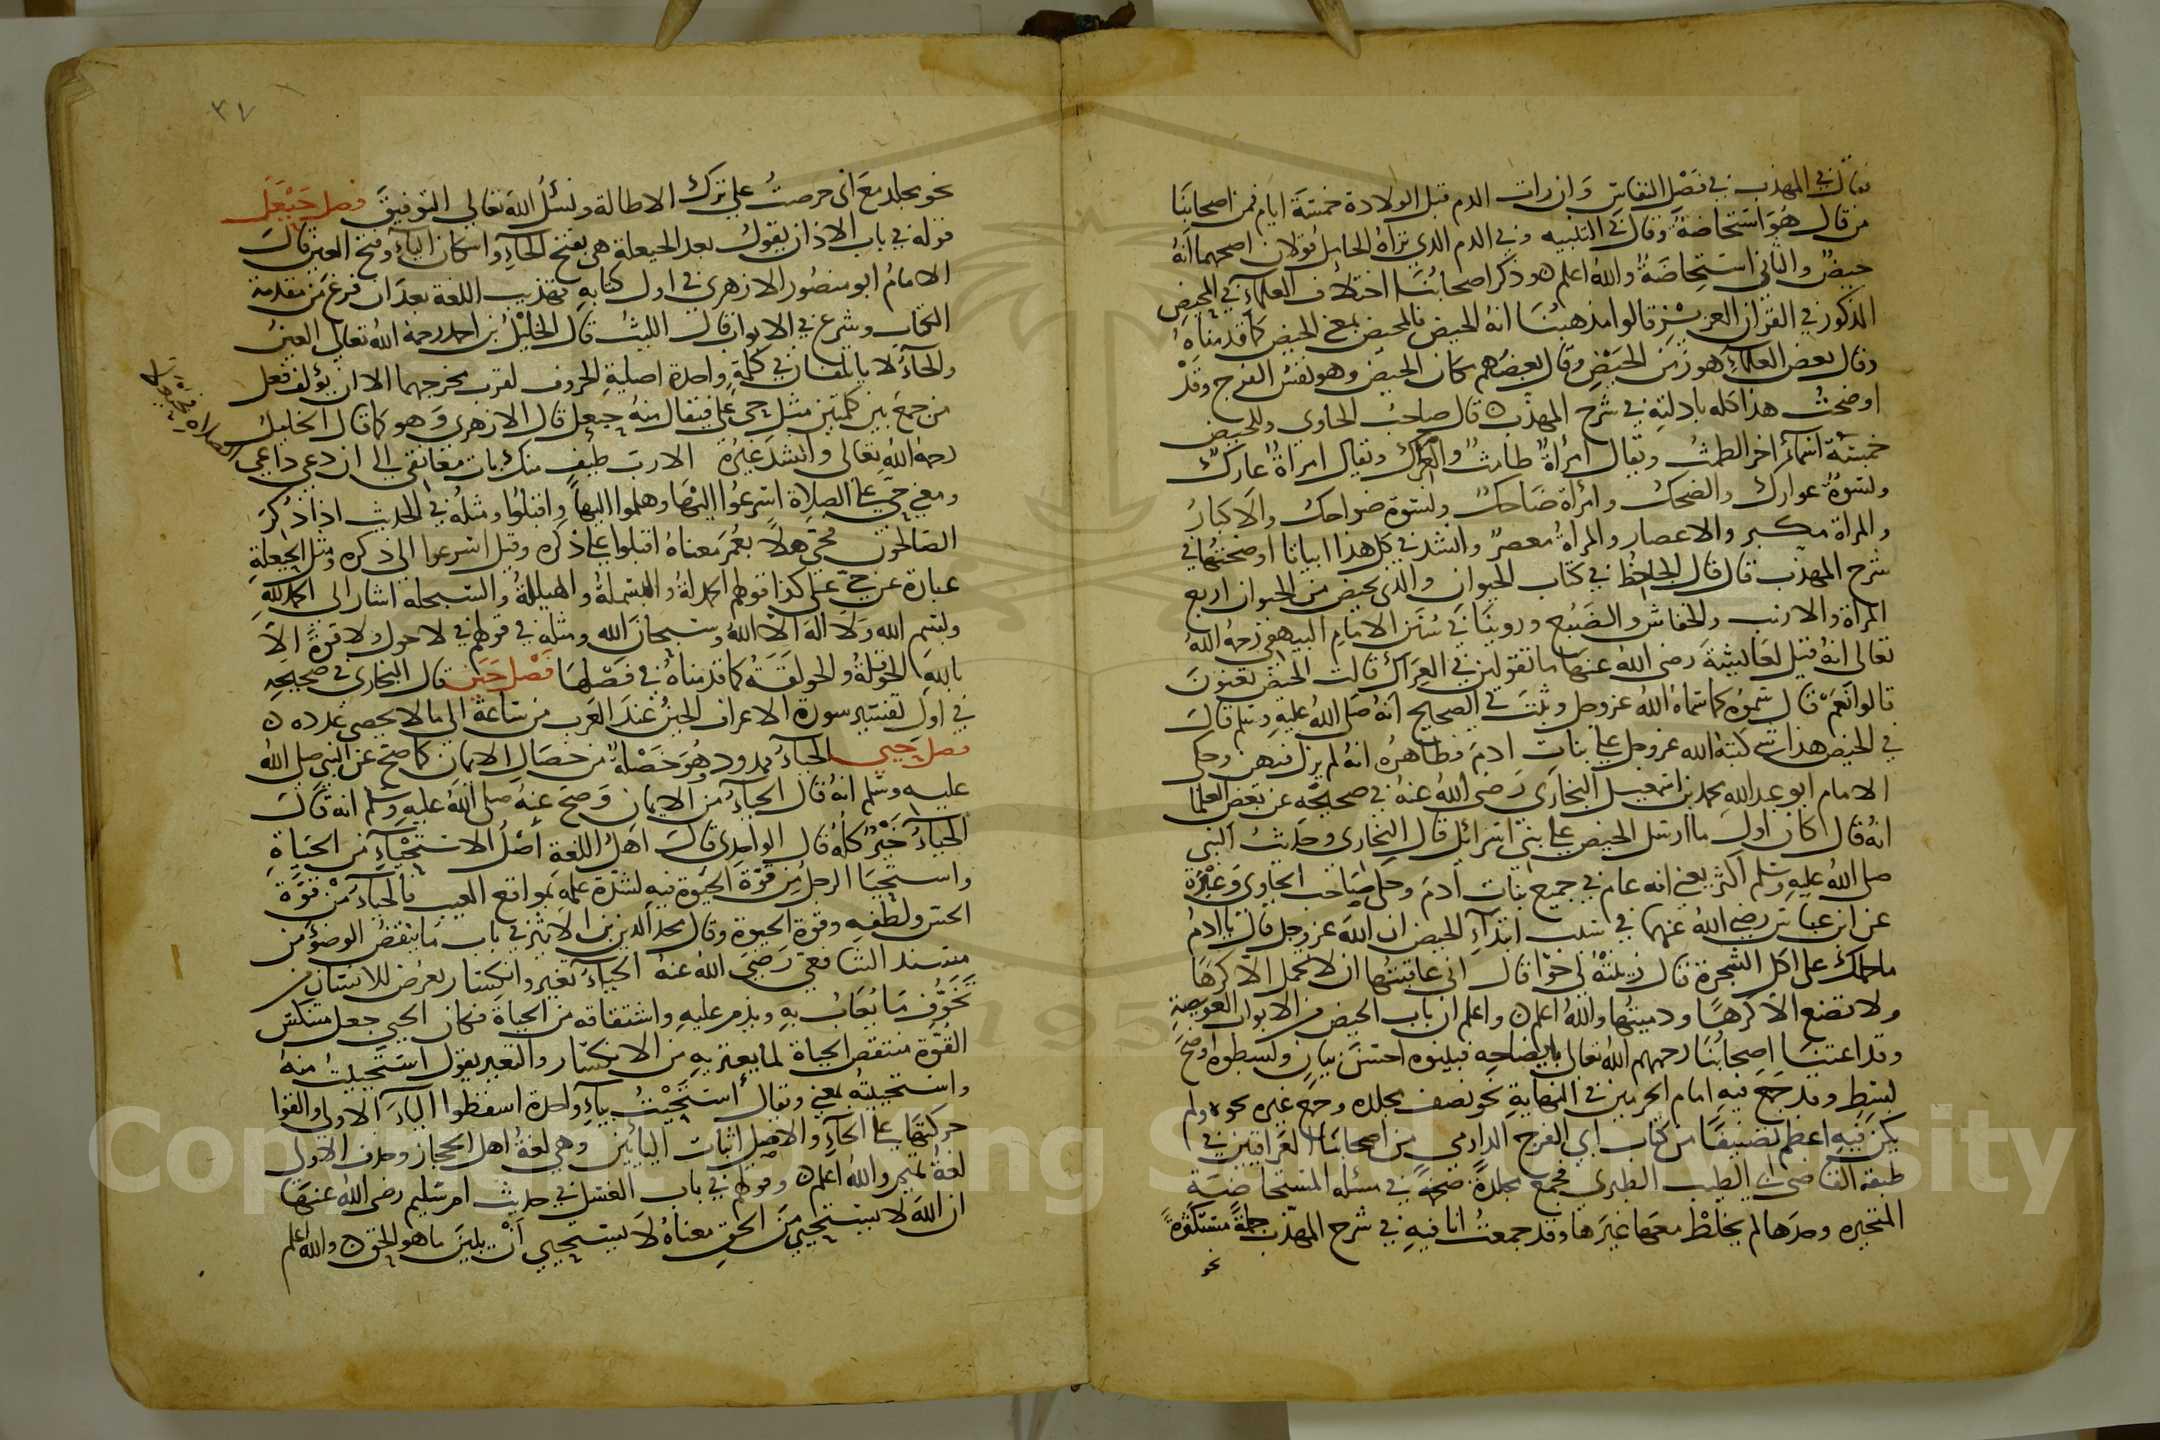 فقال في المهذب في فصل النفاس وان رات الدم قبل الولادة خمسة ايام فمن اصحابنا
من قال هو استحاضة وقال في التنبيه وفي الدم الذي تراه الحامل قولان اصحهما انه
حيض والثاني استحاضة والله اعلم ه وذكر اصحابنا اختلاف العلماء في المحيض
المذكور في القران العزيز قالوا مذهبنا انه الحيض فالمحيض بمعنى الحيض كما قدمناه
وقال بعض العلماء هو زمن الحيض وقال بعضهم مكان الحيض وهو نفس الفرج وقد
اوضحت هذا كله بادلته في شرح المهذب ه قال صاحب الحاوي وللحيض
خمسة اسماء اخر الطمث ويقال امرأة طامث والعراك ويقال امراة عارك
ونسوة عوارك والضحك وامرأة ضاحك ونسوة ضواحك والاكبار
والمراة مكبر والاعصار والمراة معصر وانشد في كل هذا ابياتا اوضحتها في
شرح المهذب قال قال الجاحظ في كتاب الحيوان والذي يحيض من الحيوان اربع
المراة والارنب والخفاش والضبع وروينا في سنن الامام البيهقي رحمه الله
تعالى انه قيل لعائشة رضى الله عنها ما تقولين في العراك قالت الحيض تعنون
قالوا نعم قال سموه كما سماه الله عز وجل وثبت في الصحيح انه صلى الله عليه وسلم قال
في الحيض هذا شى كتبه الله عز وجل على بنات ادم فظاهره انه لم يزل فيهن وحكى
الامام ابو عبد الله محمد بن اسمعيل البخارى رضى الله عنه في صحيحه عن بعض العلما
انه قال كان اول ما ارسل الحيض على بنى اسرائل قال البخارى وحديث النبي
صلى الله عليه وسلم اكثر يعني انه عام في جميع بنات ادم وحكى صاحب الحاوى وغيره
عن ابن عباس رضي الله عنهما في سبب ابتداء الحيض ان الله عز وجل قال يا ادم
ما حملك على اكل الشجرة قال زينته لي حوا قال اني عاقبتها ان لا تحمل الا كرها
ولا تضع الا كرها ودميتها والله اعلم ه واعلم ان باب الحيض من الابواب العويصة
وقد اعتنى اصحابنا رحمهم الله تعالى بايضاحه فبينوه احسن بيان وبسطوه اوضح
بسط وقد جمع فيه امام الحرمين في النهاية نحو نصف مجلده وجمع غيره نحوه ولم
يكن فيه اعظم تصنيفا من كتاب ابي الفرج الدارمي من اصحابنا العراقيين في
طبقة القاضي ابي الطيب الطبري فجمع مجلدة ضخمة في مسئلة المستحاضة
المتحيره وحدها لم يخلط معها غيرها وقد جمعت انا فيه في شرح المهذب جملة مستكثرة
نحو
٣٧
نحو مجلد مع انى حرصت على ترك الاطالة ونسئل الله تعالى التوفيق فصل حيعل
قوله في باب الاذان يقول بعد الحيعلة هي بفتح الحاء واسكان الياء وفتح العين قال
الامام ابو منصور الازهري في اول كتابه تهذيب اللغة بعد ان فرغ من مقدمة
الكتاب وشرع في الابواب قال الليث قال الخليل بن احمد رحمه الله تعالى العين
والحاء لا ياتلفان في كلمة واحدة اصلية الحروف لقرب مخرجهما الا ان يؤلف فعل
من جمع بين كلمتين مثل حي على فيقال منه حيعل قال الازهري وهو كما قال الخليل
رحمه الله تعالى وانشد غيره الا رب طيف منك بات معانقي الى ان دعى داعي
ومعنى حي على الصلاة اسرعوا اليها وهلموا اليها واقبلوا ومثله في الحديث اذا ذكر
الصالحون فحي هلا بعمر معناه اقبلوا على ذكره وقيل اسرعوا الى ذكره ومثل الحيعلة
عبارة عن حي على كذا قولهم الحمدلة والبسملة والهيللة والسبحله اشار الى الحمد لله
وبسم الله ولا اله الا الله وسبحان الله ومثله في قولهم في لا حول ولا قوة الا
بالله الحوقلة والحولقة كما قدمناه في فصلها فصل حين قال البخارى في صحيحه
في اول تفسير سورة الاعراف الحين عند العرب من ساعة الى ما لا يحصى عدده ه
فصل حيي الحياء ممدود وهو خصلة من خصال الايمان كما صح عن النبي صلى الله
عليه وسلم انه قال الحياء من الايمان وصح عنه صلى الله عليه وسلم انه قال
الحياء خير كله قال الواحدى قال اهل اللغة اصل الاستحياء من الحياة
واستحيا الرجل من قوة الحيوة فيه لشدة علمه بمواقع العيب فالحياء من قوة
الحس ولطفه وقوة الحيوة وقال مجد الدين بن الاثير في باب ما ينقض الوضوء من
مسند الشافعي رضى الله عنه الحياء تغير وانكسار يعرض للانسان من
تخوف ما يعاب به ويذم عليه واشتقاقه من الحياة فكان الحيي جعل منتكس
القوة منتقص الحياة لما يعتريه من الانكسار والتغير يقول استحييت منه
واستحييته بمعنى ويقال استحيت بياء واحدة اسقطوا الياء الاولى والقوا
حركتها على الحاء والاصل اثبات اليائين وهي لغة اهل الحجاز وحذف الاولى
لغة تميم والله اعلم ه وقولهم في باب الغسل في حديث ام سليم رضى الله عنها
ان الله لا يستحيي من الحق معناه لا يستحيي ان يبين ما هو الحق ه والله اعلم